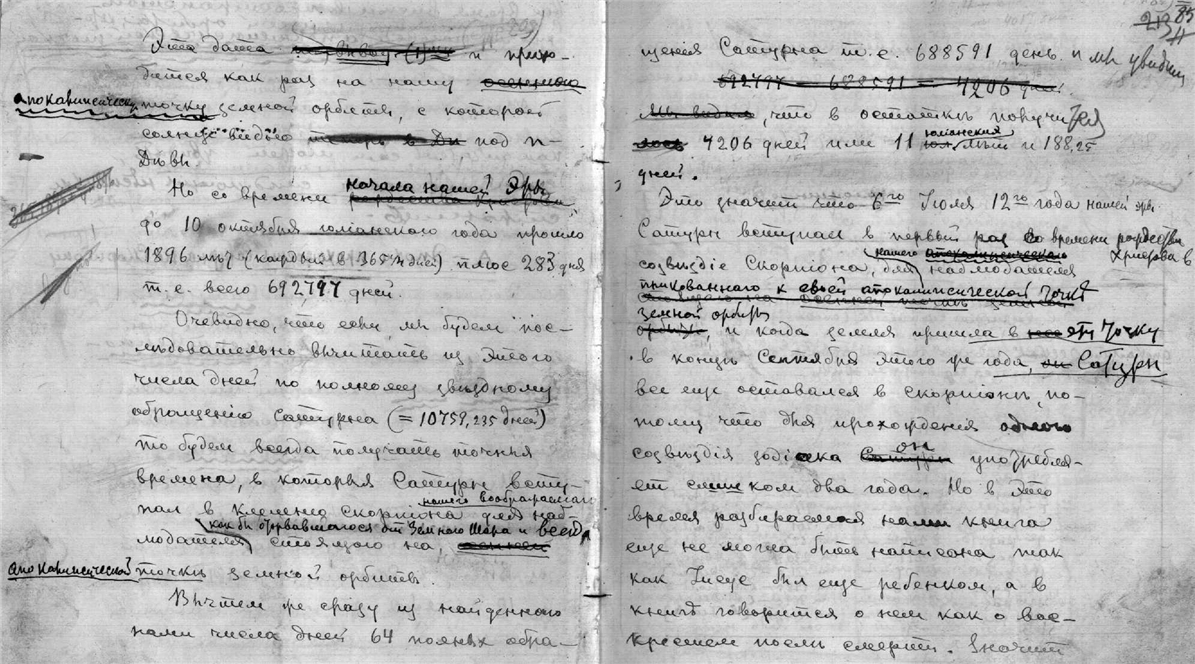 Эта дата и прихо-
дится как раз на нашу
апокалипсическ. точку земной орбиты, с которой
солнце видно под н.
Дѣвы.
начала нашей эры
Но со времени
до 10 октября юлианского года прошло
1896 лѣт (каждый в 365¼ дней) плюс 283 дня
т. е. всего 692797 дней.
Очевидно, что если мы будем пос-
лѣдовательно вычитать из этого
числа дней по полному звѣздному
обращению Сатурна (= 10759,235 дней)
то будем всегда получать точныя
времена, в которыя Сатурн всту-
нашего воображаемаго
пал в Скорпиона для наб-
как бы оторвавшагося от Земного Шара и всегда
людателя стоящего на,
апокалипсической точкѣ земной орбиты.
Вычтем же сразу из найденного
нами числа дней 64 полных обра-
213
85
щения Сатурна т. е. 688591 день и мы увидим
692797 — 688591 = 4206 дней
что в остаткѣ получится
юлианских
4206 дней или 11 лѣт и 188,25
дней.
Это значит что 6го Июля 12го года нашей эры
Сатурн вступил в первый раз со времени рождества
Христова в
нашего апокалипсического
созвѣздие Скорпиона, для наблюдателя
прикованного к своей апокалипсической точкѣ
земной орбиты
и когда земля пришла в эту точку
в концѣ Сентября этого же года, он Сатурн
все еще оставался в Скорпионѣ, по-
тому что для прохождения одного
он
созвѣздия зодіака Сатурн употребля-
ет слишком два года. Но в это
время разбираемая нами книга
еще не могла быть написана так
как Иисус был еще ребенком, а в
книгѣ говорится о нем как о вос-
кресшем послѣ смерти. Значит